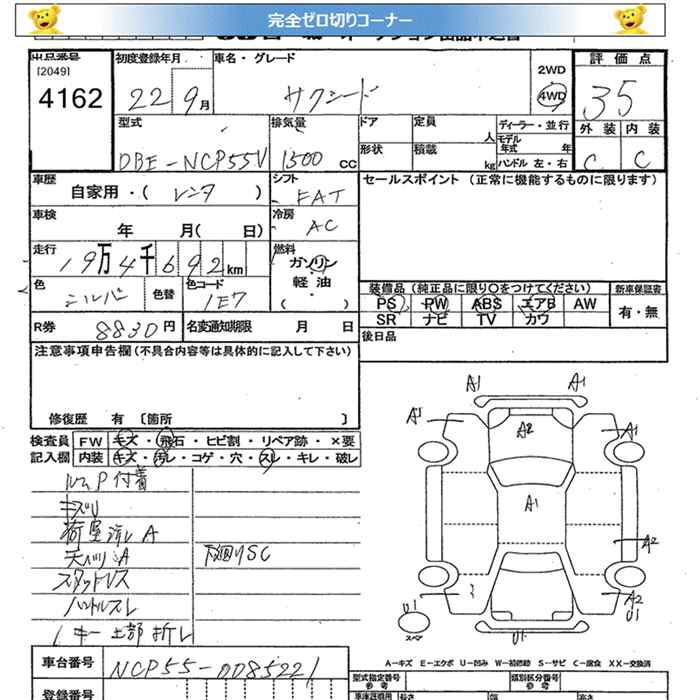 完全ゼロ切りコーナー
出品番号
[2049]
4162
初度登録年月
22 9月
車名・グレード
サクシード
2WD
4WD
評価点
3.5
型式
DBE-NCP55V
排気量
1500 cc
ドア
定員
人
形状
積載
kg
ディーラー・並行
モデル年式 年
ハンドル 左・右
外装 内装
C C
車歴
自家用・( レンタ )
シフト
FAT
セールスポイント (正常に機能するものに限ります)
車検
年 月( 日)
冷房
AC
走行
19万4千692km
燃料
ガソリン
軽油
( ・ )
色
シルバー
色替
色コード
1E7
装備品 (純正品に限り○をつけてください)
新車保証書
PS PW ABS エアB AW
SR ナビ TV カワ
有・無
R券
8830円
名変通知期限 月 日
後日品
注意事項申告欄(不具合内容等は具体的に記入して下さい)
修復歴 有 〔箇所 〕
検査員 FW キズ・飛石・ヒビ割・リペア跡・×要
記入欄 内装 キズ・汚レ・コゲ・穴・スレ・キレ・破レ
付着
荷室汚レA
下廻りSC
ハンドルスレ
キー上部折レ
A1 A1
A1 A2 A1
A1
A2
A2
U1
U1
スペア
U1
A-キズ E-エクボ U-凹み W-補修跡 S-サビ C-腐食 XX-交換済
車台番号
NCP55-0085221
型式指定番号
参考
類別区分番号
参考
登録番号
車庫証明用
参考
長さ
幅
高さ